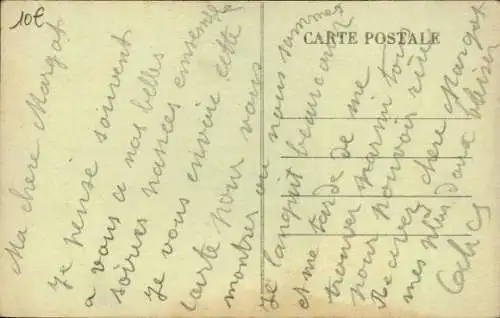 10€
CARTE POSTALE
Ma chere Margot
Je pense souvent
a vous a nos belles
soirées ensemble
Je vous envoie cette
carte pour vous
montrer ou nous sommes
Je languit beaucoup
et me tarde de me
trouver parmi tous
pour pouvoir rire
Recevez chere Margot
mes plus doux baiser